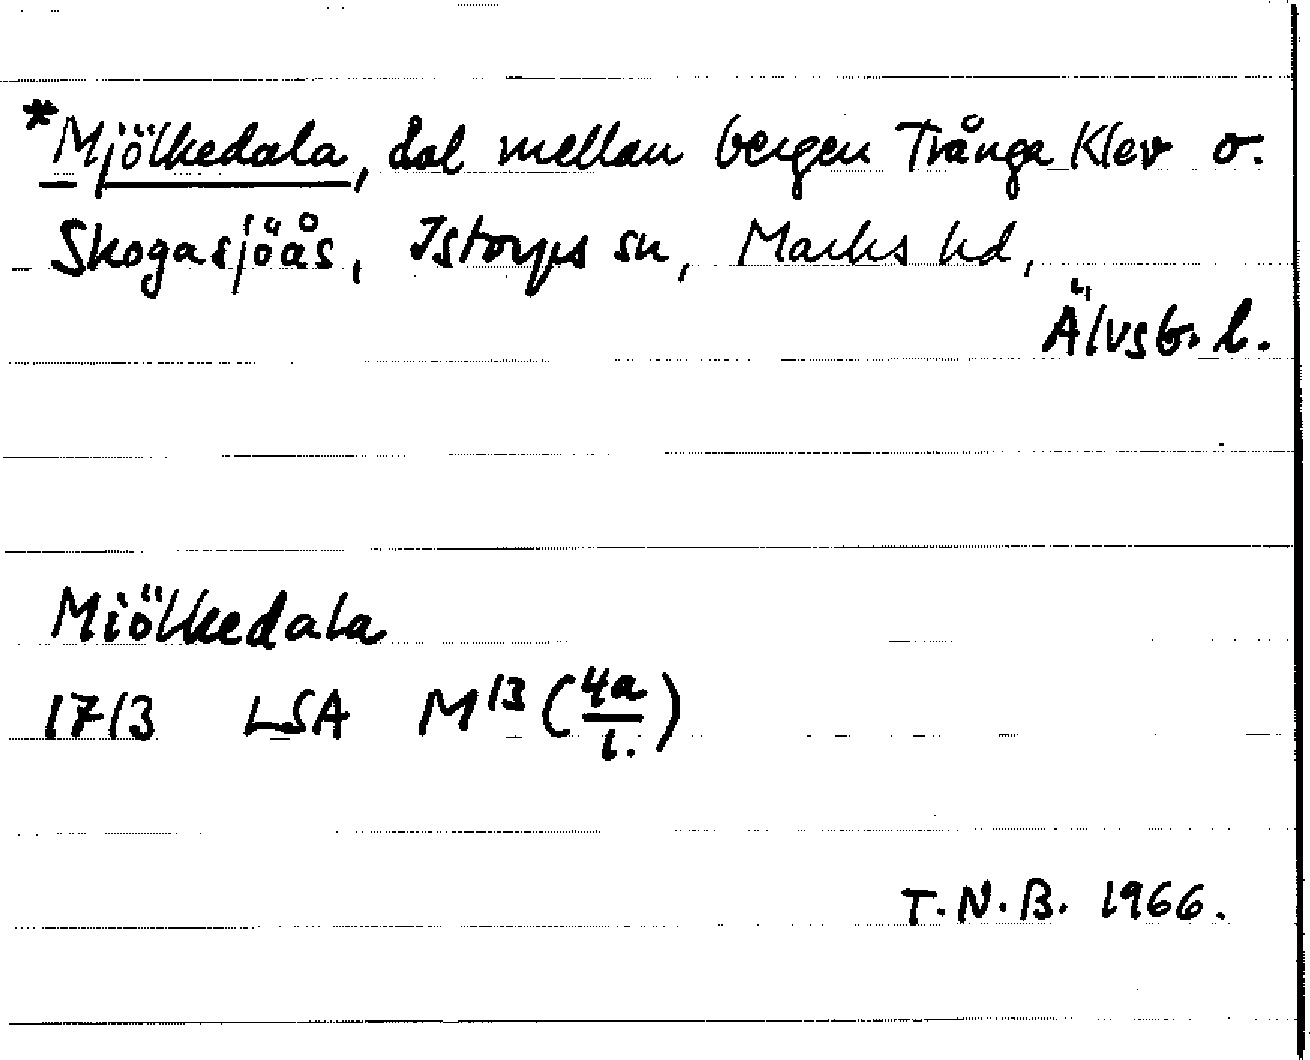 *Mjölkedala, dal mellan bergen Trånga Klev o.
Skogasjöås, Istorps sn, Marks hd,
Älvsb. l.
Miölkedala
1713 LSA M13 (4a/1.)
T.N.B. 1966.